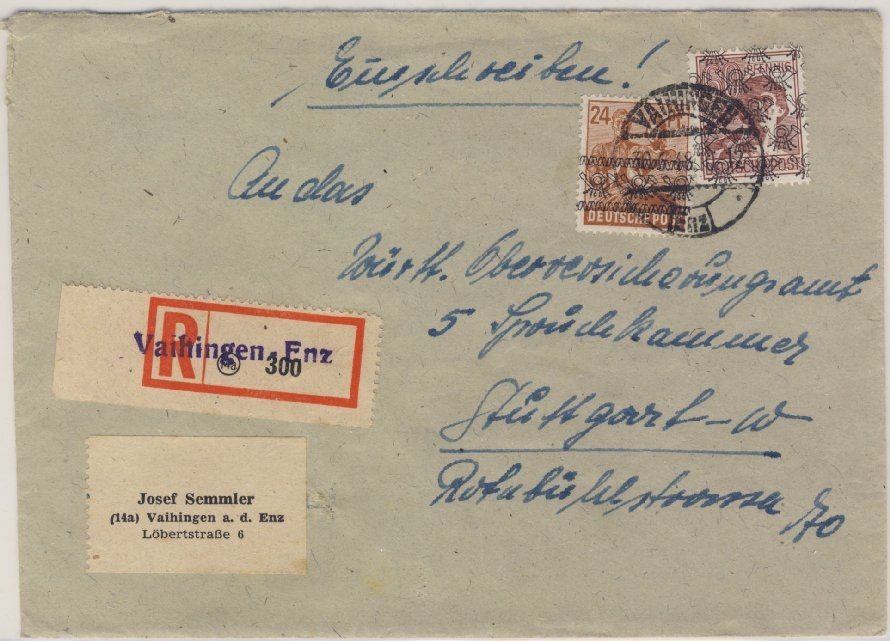 Einschreiben!
PFENNIG
24
VAIHINGEN
DEUTSCHE PO
POST
(ENZ)
An das
Württ. Oberversicherungsamt
5 Spruchkammer
Stuttgart-W
Rotebühlstrasse 70
R Vaihingen, Enz
300
Josef Semmler
(14a) Vaihingen a. d. Enz
Löbertstraße 6